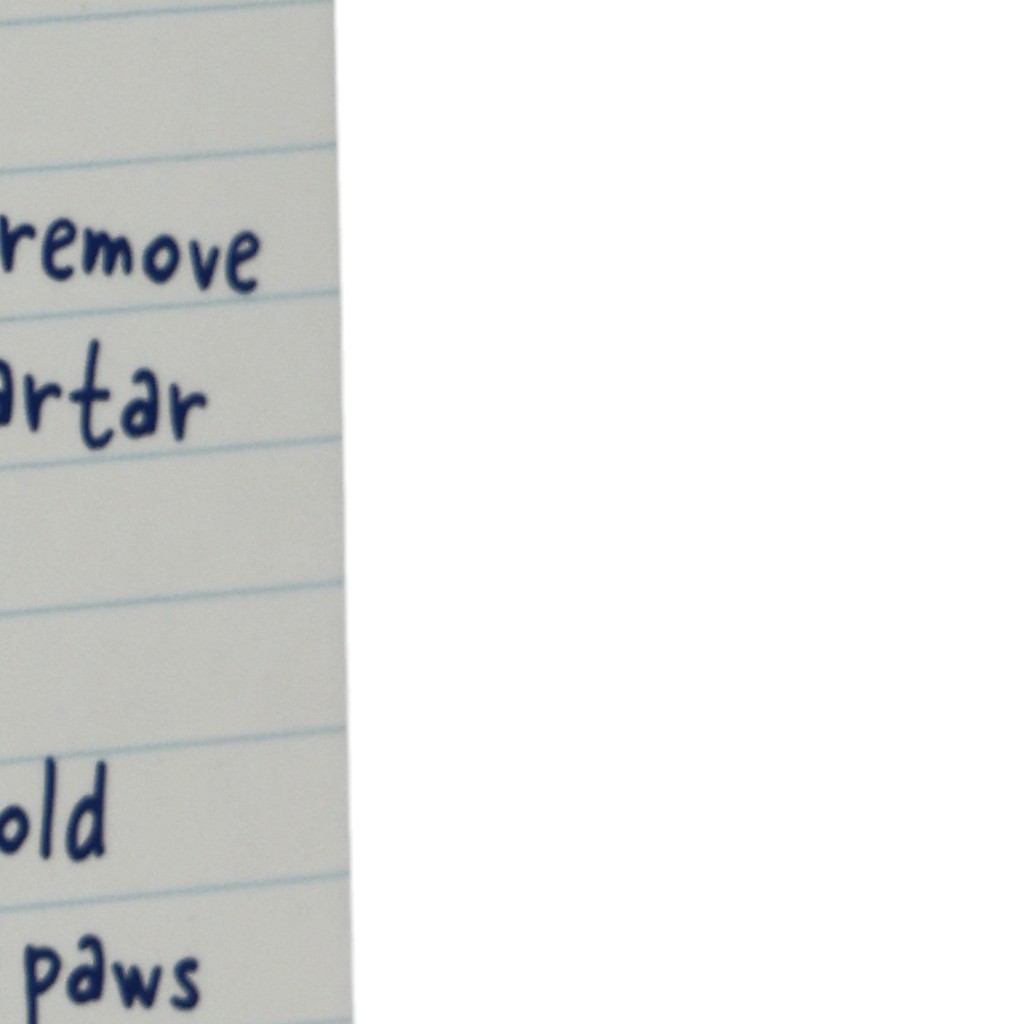 remove
artar
old
paws